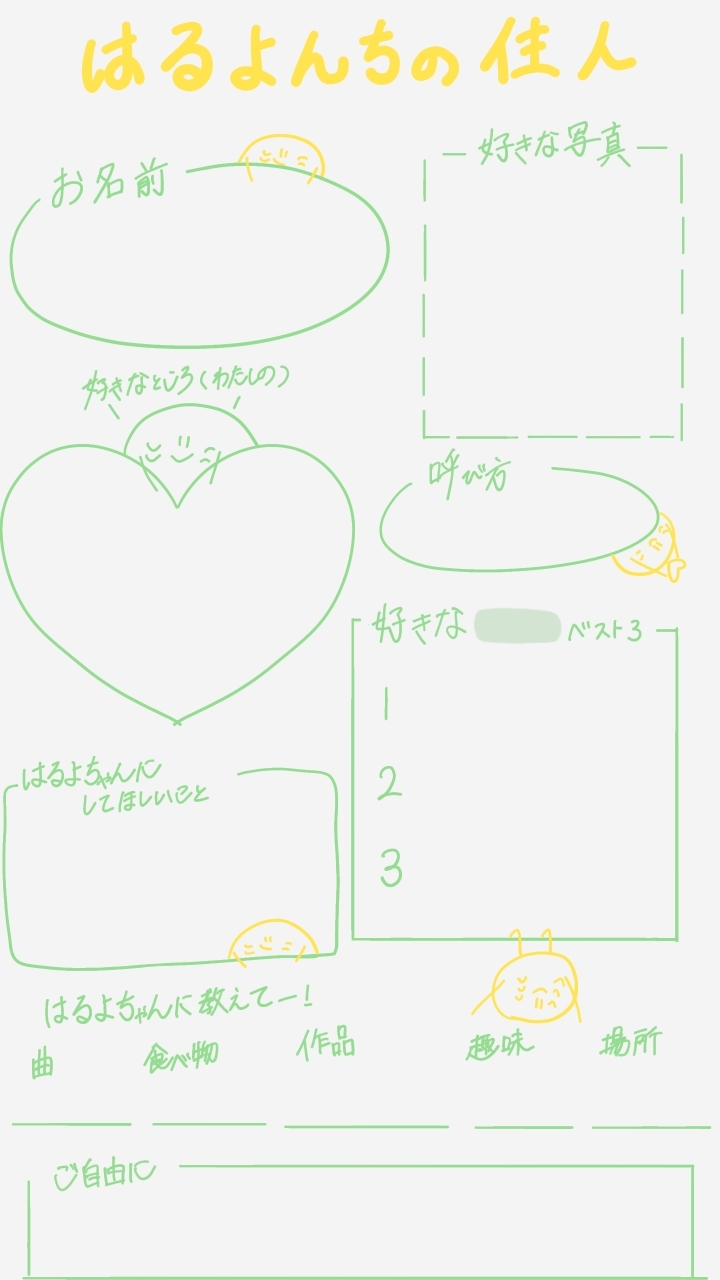 はるよんちの住人
お名前
好きな写真
好きなところ(わたしの)
呼び方
好きな ベスト3
1
2
3
はるよちゃんに
してほしいこと
はるよちゃんに教えてー!
曲 食べ物 作品 趣味 場所
ご自由に